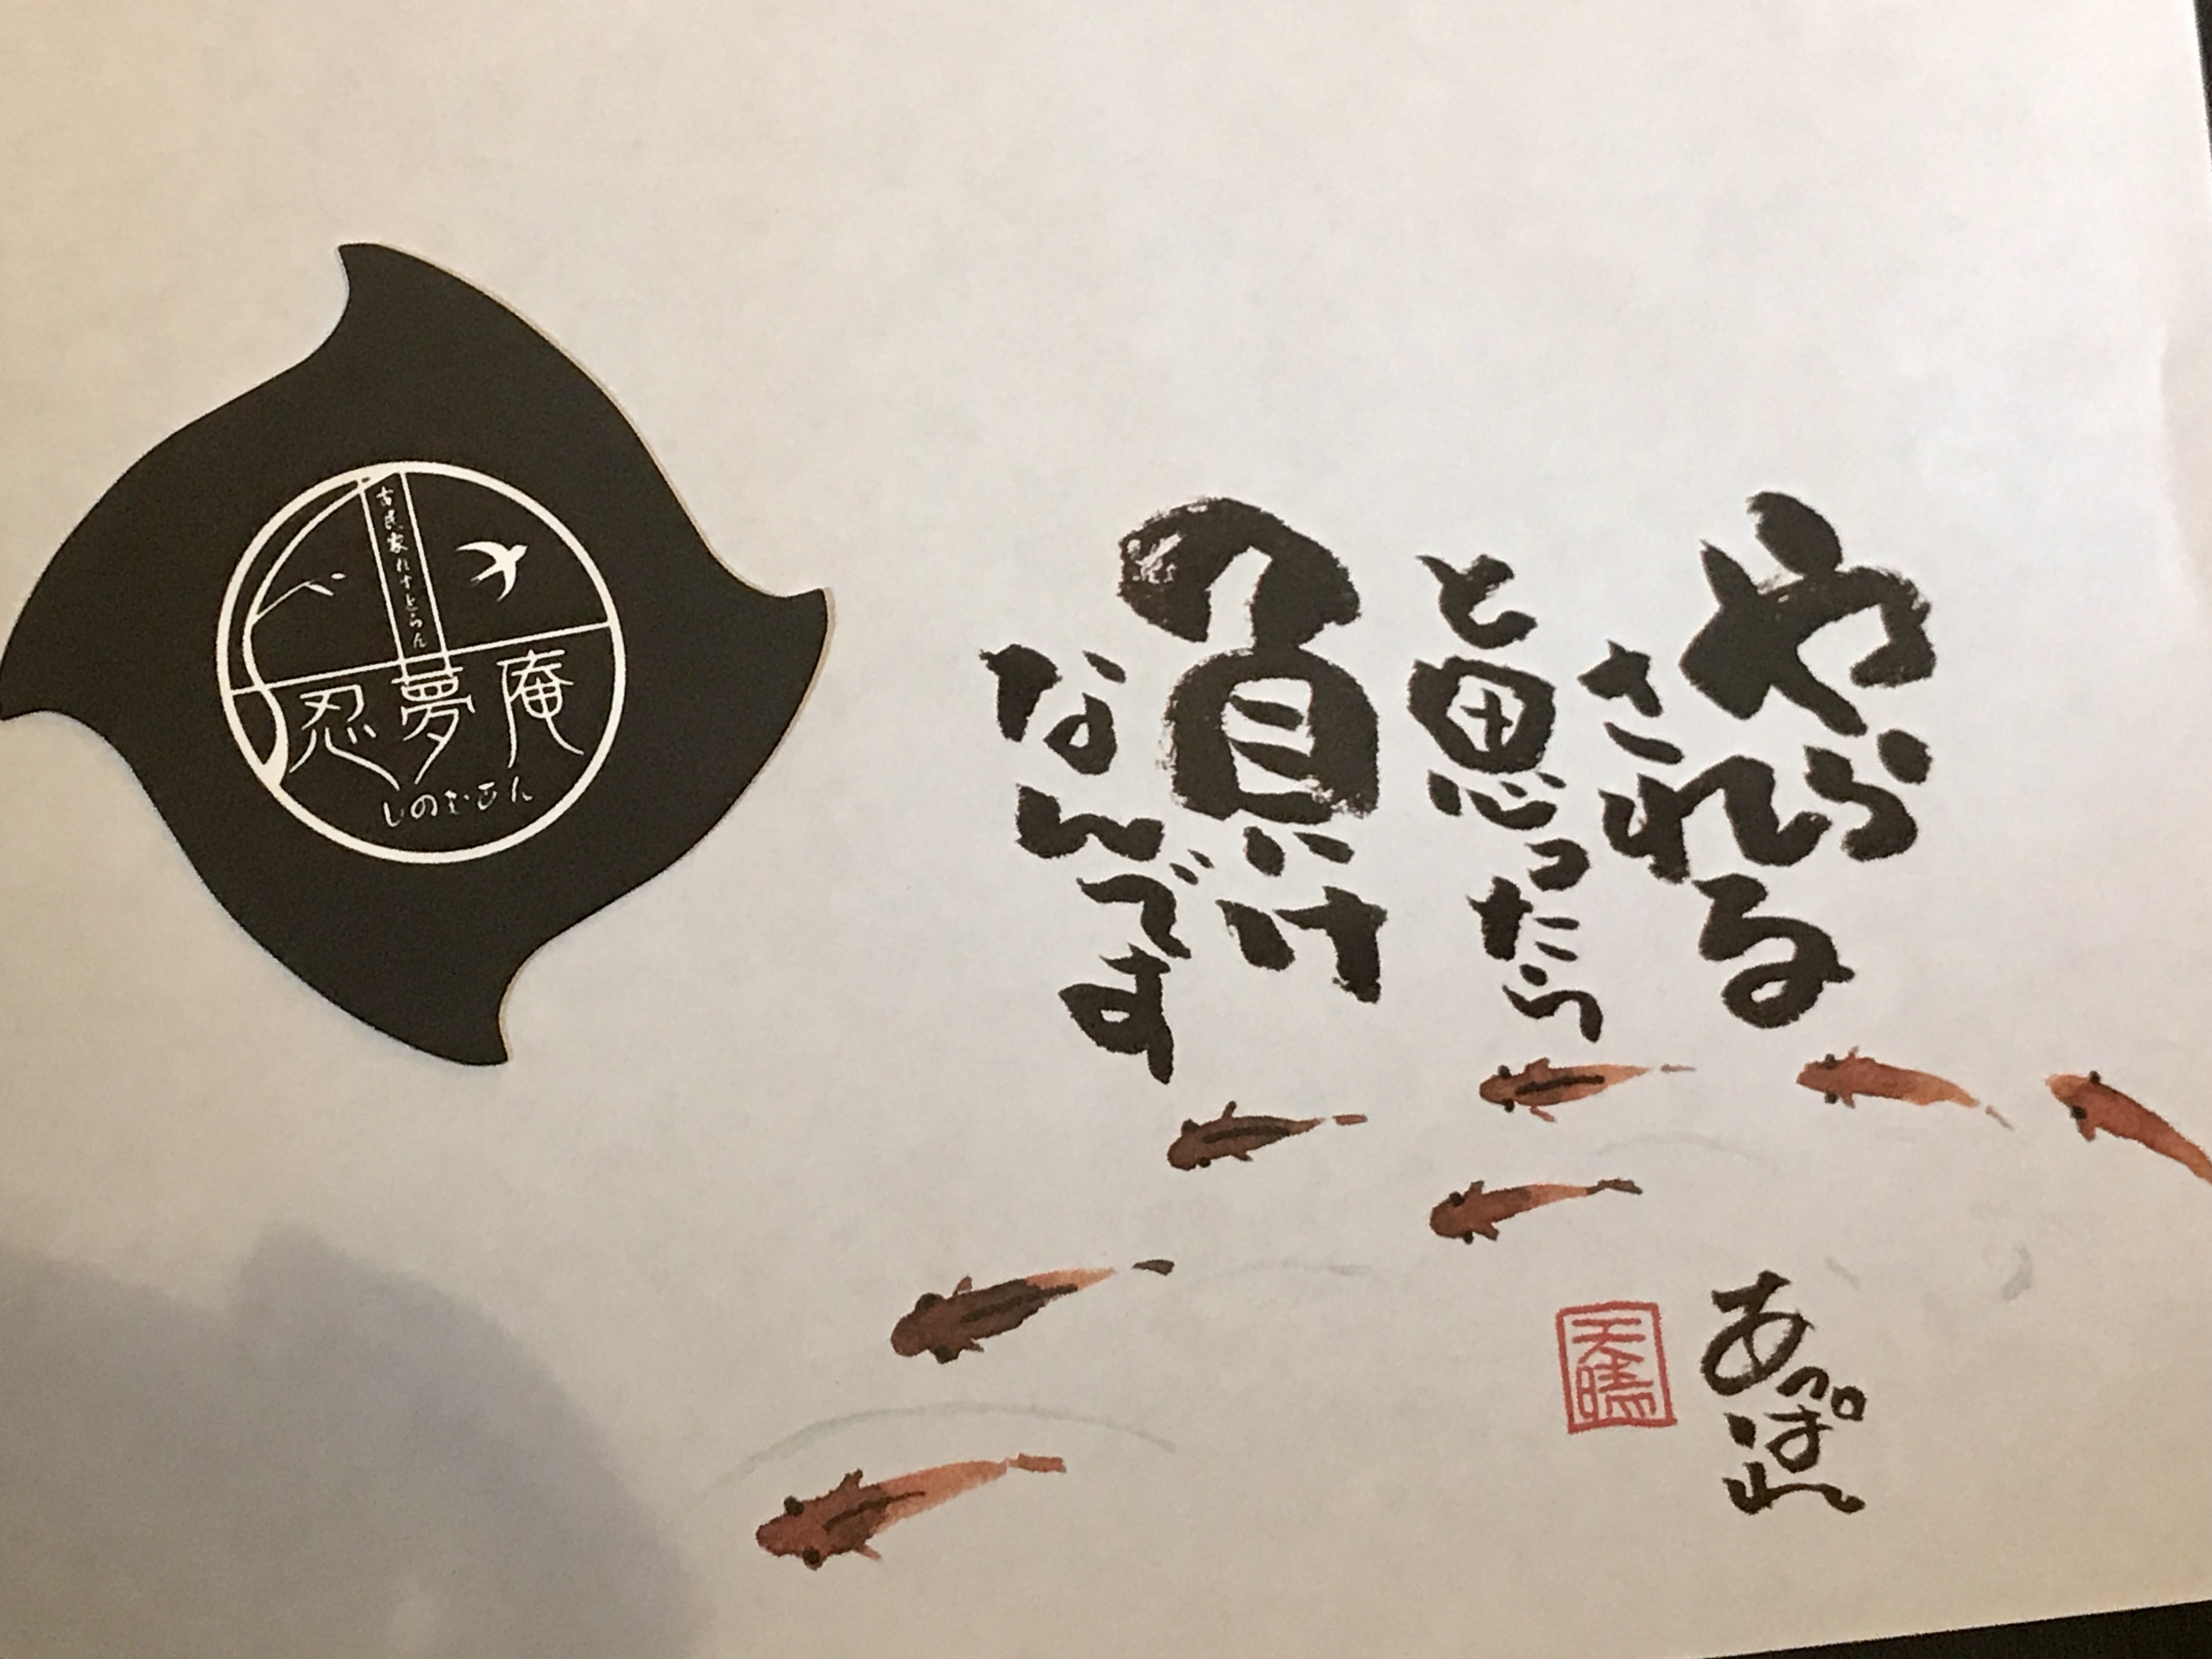 やら
される
と思ったら
負け
なんです
あっぱれ
天晴
古民家れすとらん
忍夢庵
しのむあん